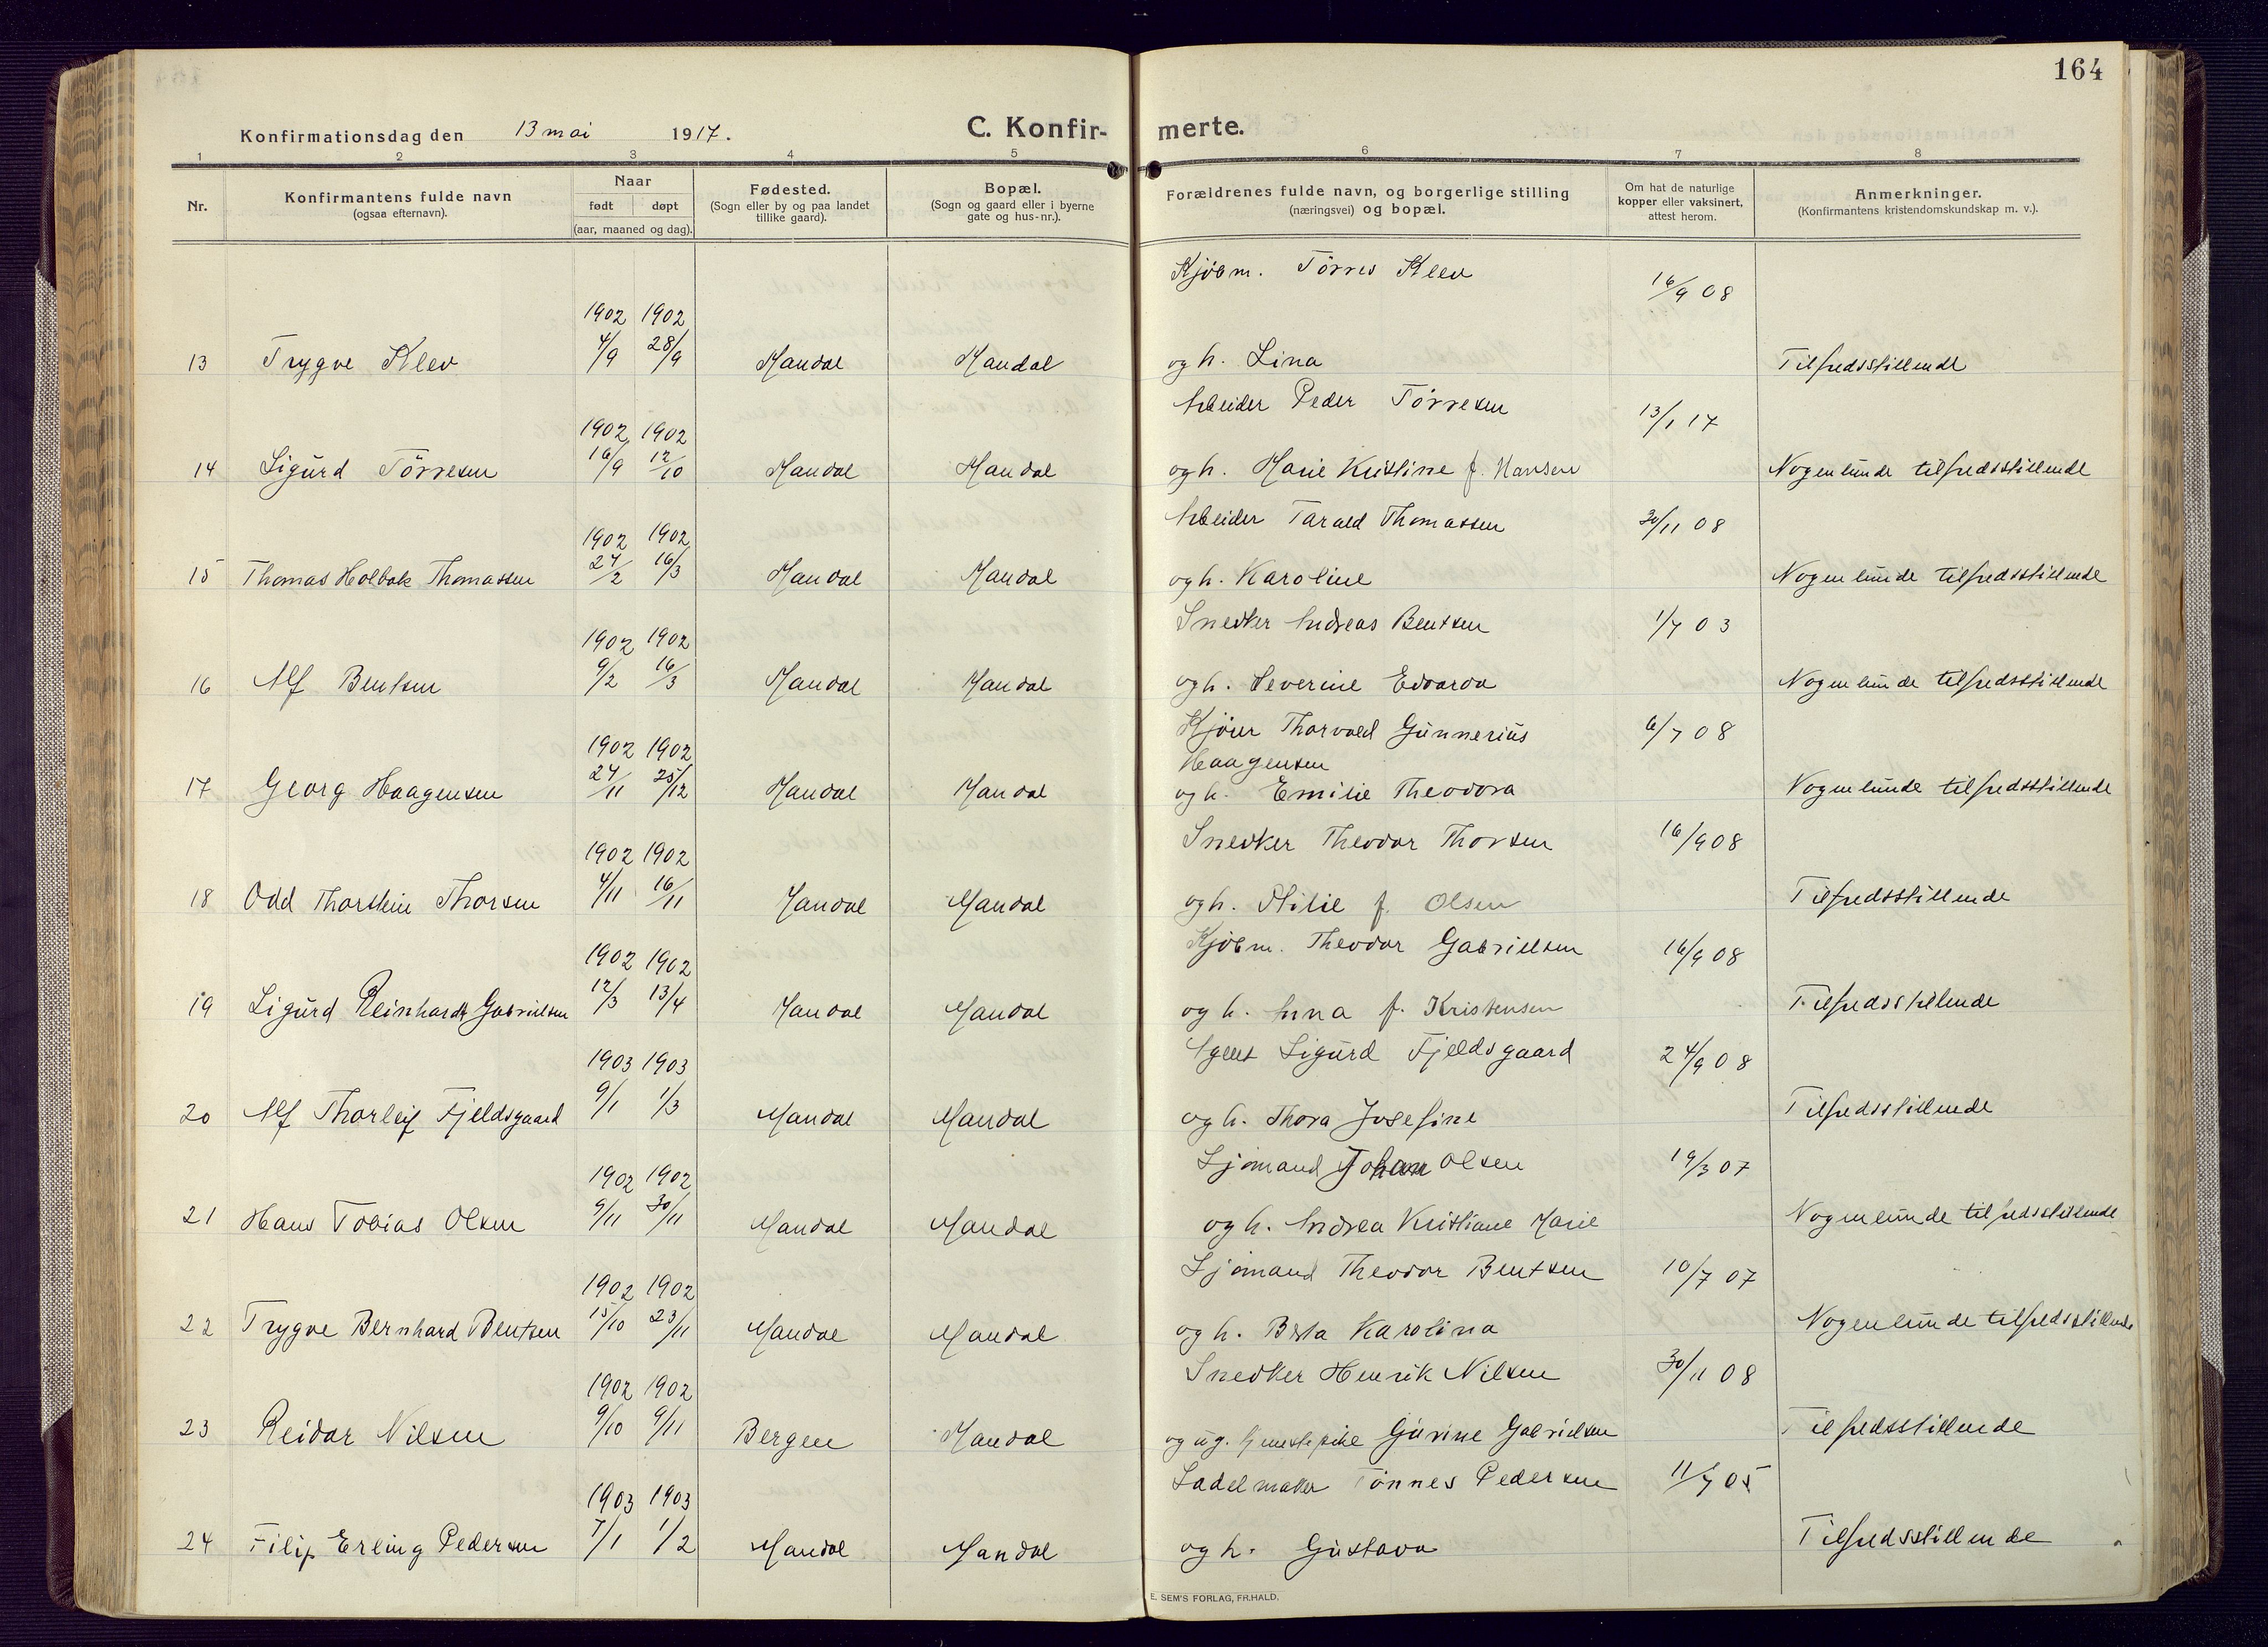 164
Konfirmationsdag den 13 mai 1917.
C. Konfir- merte.
1 2 3 4 5 6 7 8
Nr.
Konfirmantens fulde navn
(ogsaa efternavn).
Naar
født døpt
(aar, maaned og dag).
Fødested.
(Sogn eller by og paa landet
tillike gaard).
Bopæl.
(Sogn og gaard eller i byerne
gate og hus-nr.).
Forældrenes fulde navn, og borgerlige stilling
(næringsvei) og bopæl.
Om hat de naturlige
kopper eller vaksinert,
attest herom.
Anmerkninger.
(Konfirmantens kristendomskundskap m. v.).
Kjøbm. Tørres Klev 16/9 08
1902 1902
13 Trygve Klev 4/9 28/9 Mandal Mandal og h. Lina Tilfredsstillende
Arbeider Peder Tørresen 13/1 17
1902 1902
14 Sigurd Tørresen 16/9 12/10 Mandal Mandal og h. Marie Kristine f. Hansen Nogenlunde tilfredsstillende
Arbeider Tarald Thomassen 30/11 08
1902 1902
15 Thomas Holbak Thomassen 24/2 16/3 Mandal Mandal og h. Karoline Nogenlunde tilfredsstillende
Snedker Andreas Bentsen 1/7 03
1902 1902
16 Alf Bentsen 9/2 16/3 Mandal Mandal og h. Severine Edvarda Nogenlunde tilfredsstillende
Thorvald Gunnerius 6/7 08
1902 1902
Haagensen
17 Georg Haagensen 24/11 25/12 Mandal Mandal og h. Emilie Theodora Nogenlunde tilfredsstillende
Snedker Theodor Thorsen 16/9 08
1902 1902
18 Odd Thorstein Thorsen 4/11 16/11 Mandal Mandal og h. f. Olsen Tilfredsstillende
Kjøbm. Theodor Gabrielsen 16/9 08
1902 1902
19 Sigurd Reinhardt Gabrielsen 12/3 13/4 Mandal Mandal og h. Anna f. Kristensen Tilfredsstillende
Agent Sigurd Fjeldsgaard 24/9 08
1903 1903
20 Alf Thorleif Fjeldsgaard 9/1 1/3 Mandal Mandal og h. Thora Josefine Tilfredsstillende
Sjømand Johan Olsen 19/3 07
1902 1902
21 Hans Tobias Olsen 9/11 30/11 Mandal Mandal og h. Andrea Kristiane Marie Nogenlunde tilfredsstillende
Sjømand Theodor Bentsen 10/7 07
1902 1902
22 Trygve Bernhard Bentsen 15/10 23/11 Mandal Mandal og h. Berta Karolina Nogenlunde tilfredsstillende
Snedker Henrik Nilsen 30/11 08
1902 1902
23 Reidar Nilsen 9/10 9/11 Bergen Mandal og ug. tjenestepike Gurine Gabrielsen Tilfredsstillende
Sadelmaker Tønnes Pedersen 11/7 05
1903 1903
24 Filip Erling Pedersen 7/1 1/2 Mandal Mandal og h. Gustava Tilfredsstillende
E. SEM'S FORLAG, FR.HALD.